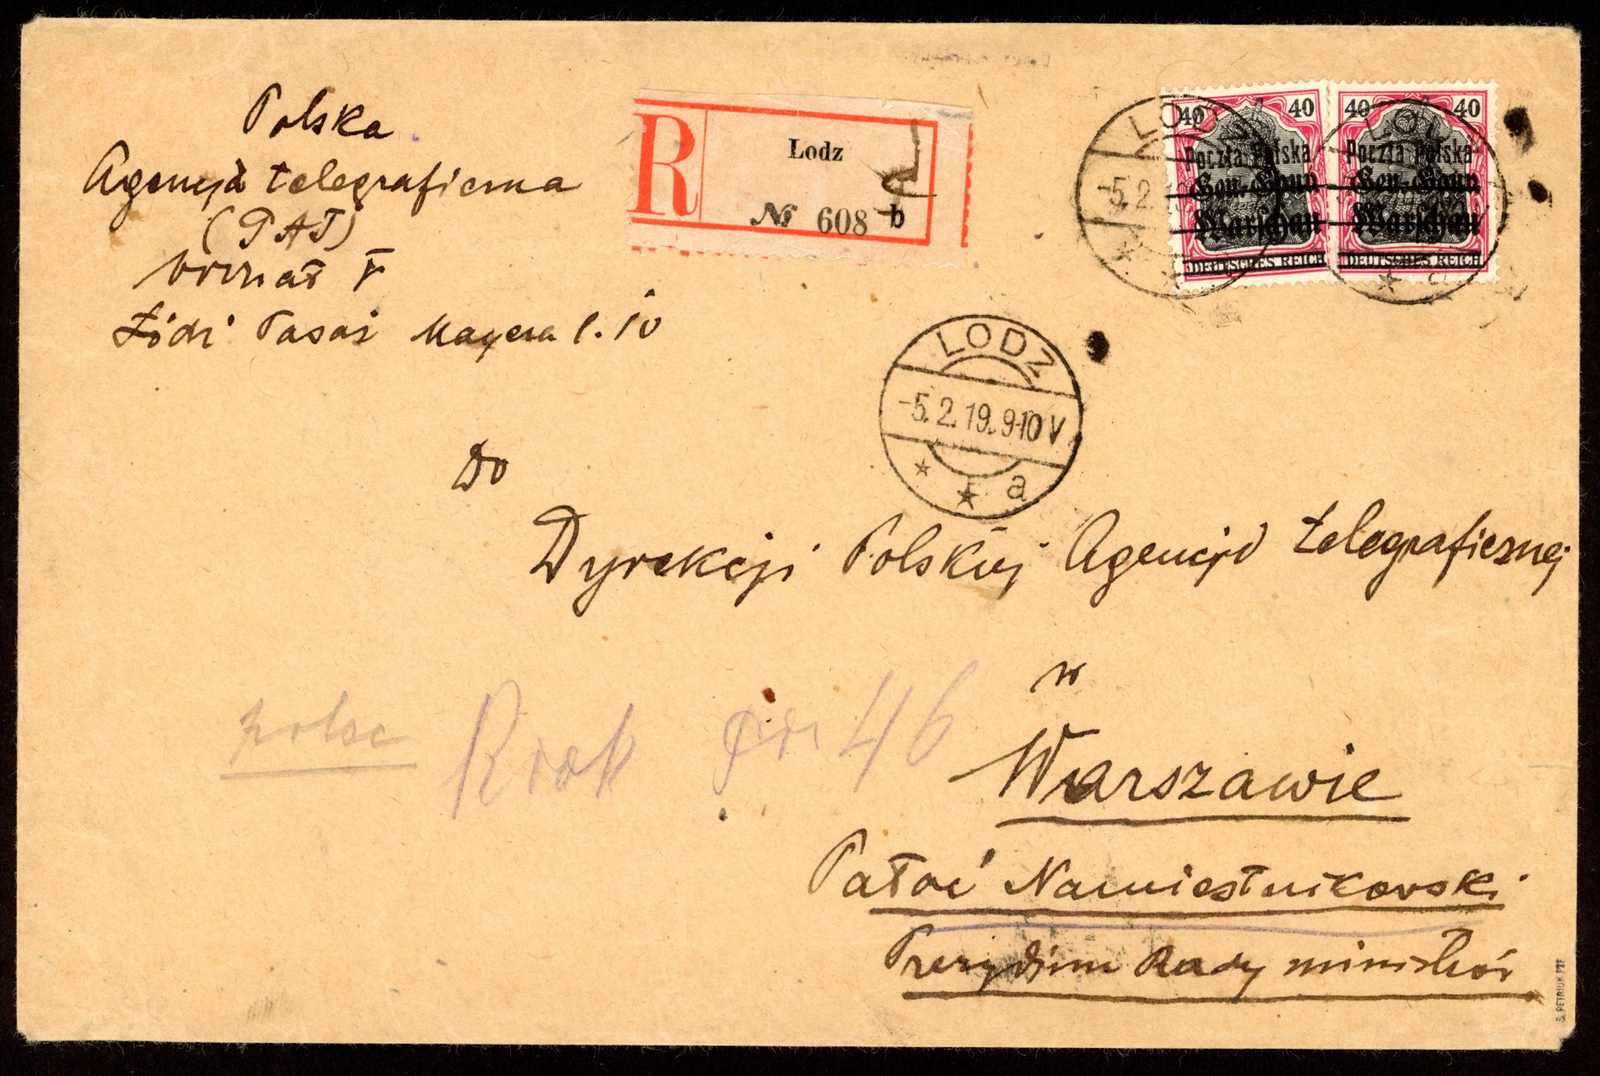 Polska
Agencja telegraficzna
(PAT)
Łódź Pasaż Mayera l. 10
R
Lodz
№ 608 b
40 40
Poczta Polska
Gen.-Gouv.
Warschau
DEUTSCHES REICH
40 40
Poczta Polska
Gen.-Gouv.
Warschau
DEUTSCHES REICH
LODZ
-5.2.
LODZ
a
LODZ
-5.2.19.9-10V
a
Do
Dyrekcji Polskiej Agencji telegraficznej
w
Warszawie
Pałac Namiestnikowski
Prezydium Rady ministrów
46
S. PETRIUK